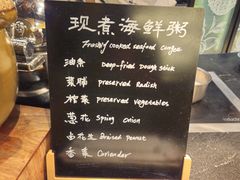 现煮海鲜粥
Freshly cooked seafood congee
油条 Deep-fried Dough stick
菜脯 preserved Radish
榨菜 preserved vegetables
葱花 Spring onion
由花生 Braised Peanut
香菜 Coriander